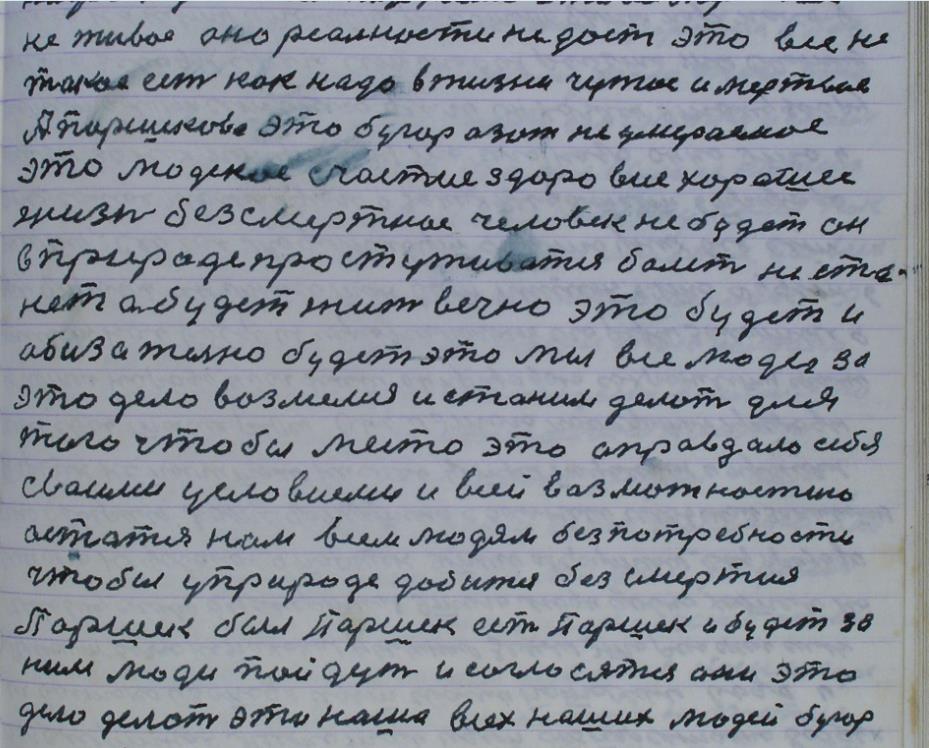 не живое оно реалности не даст это все не
такое ест как надо в жизни чужое и мертвое
А паршково это бугор азот не умераемое
это людское счастие здоровие хорошее
жизн безсмертное человек не будет он
в природе простуживатся болет не ста-
нет а будет жит вечно это будет и
абизателно будет это мы все люди за
это дело возмемся и станим делат для
того чтобы место это оправдало себя
сваими условиеми и всей возможностию
остатся нам всем людям без потребности
чтобы у природе добится безсмертия
Паршек был Паршек ест Паршек и будет за
ним люди пойдут и согласятся они это
дело делат это наша всех наших людей бугор